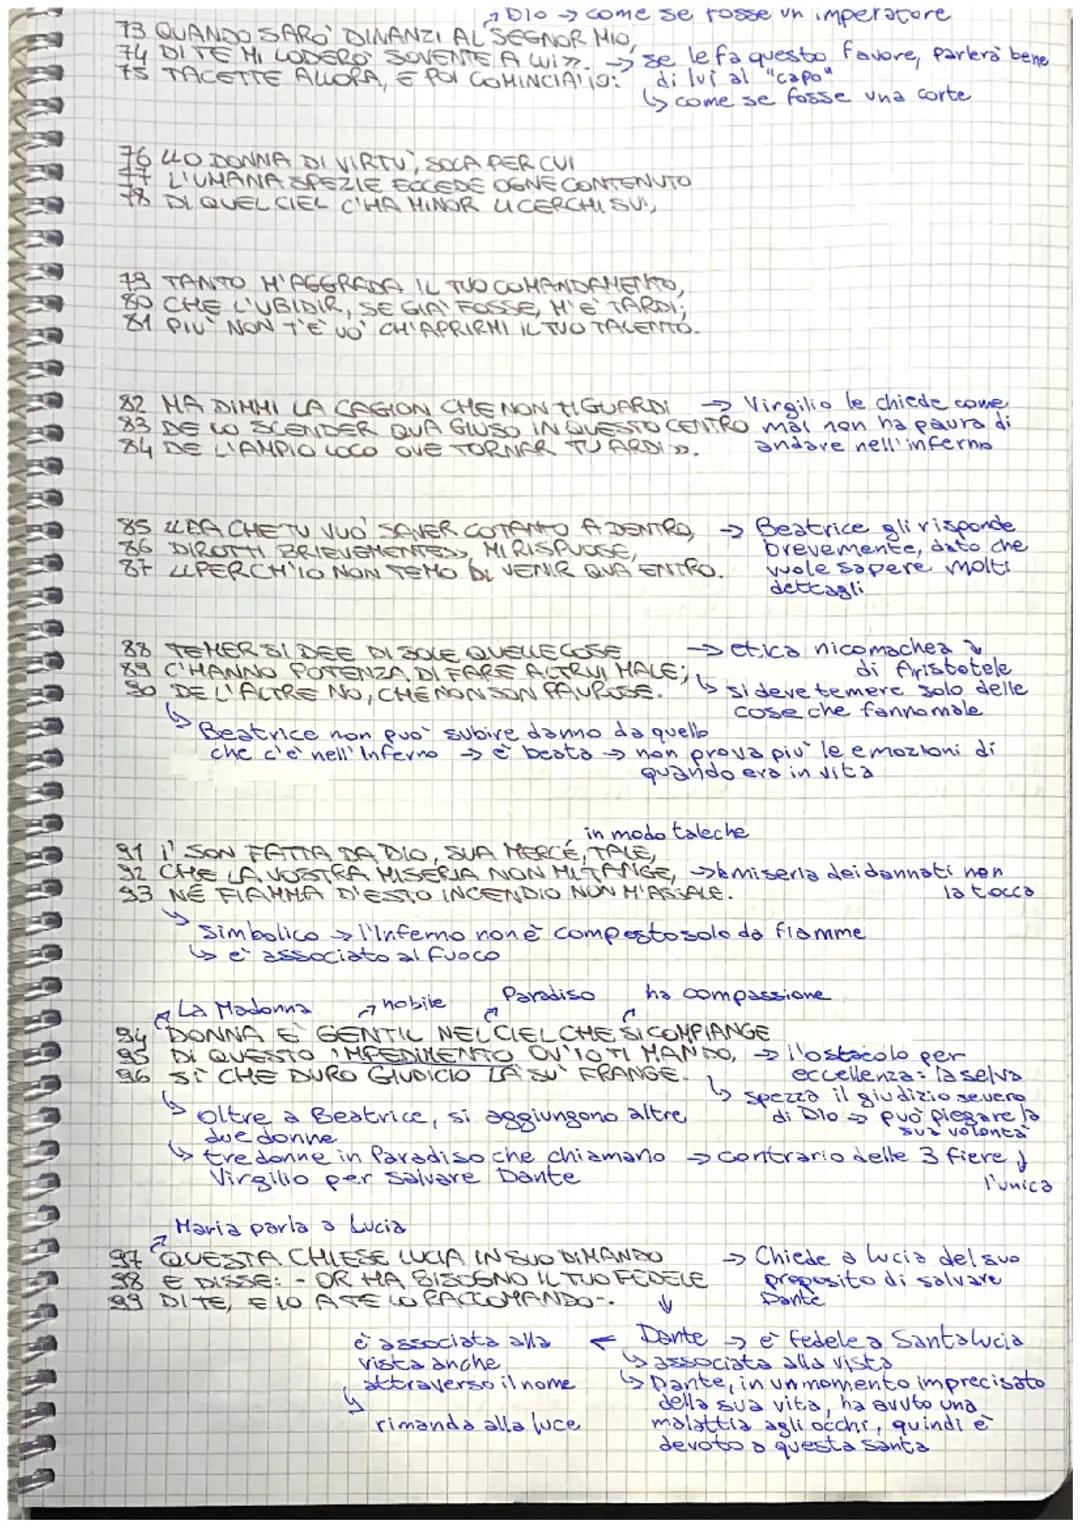 ↗ DIO → come se fosse un imperatore
73 QUANDO SARÒ DINANZI AL SEGNOR MIO,
74 DI TE MI LODERÒ SOVENTE A LUI». → se le fa questo favore, parlerà bene
75 TACETTE ALLORA, E POI COMINCIA' IO: di lui al "capo"
↳ come se fosse una corte
76 «O DONNA DI VIRTÙ, SOLA PER CUI
77 L'UMANA SPEZIE ECCEDE OGNE CONTENUTO
78 DI QUEL CIEL C'HA MINOR LI CERCHI SUI,
79 TANTO M'AGGRADA IL TUO COMANDAMENTO,
80 CHE L'UBIDIR, SE GIÀ FOSSE, M'È TARDI;
81 PIÙ NON T'È UO' CH'APRIRMI IL TUO TALENTO.
82 MA DIMMI LA CAGION CHE NON TI GUARDI → Virgilio le chiede come
83 DE LO SCENDER QUA GIUSO IN QUESTO CENTRO mai non ha paura di
84 DE L'AMPIO LOCO OVE TORNAR TU ARDI». andare nell'inferno
85 «DA CHE TU VUO' SAVER COTANTO A DENTRO, → Beatrice gli risponde
86 DIROTTI BRIEVEMENTE», MI RISPUOSE, brevemente, dato che
87 «PERCH'IO NON TEMO DI VENIR QUA ENTRO. vuole sapere molti
dettagli
88 TEMER SI DEE DI SOLE QUELLE COSE → etica nicomachea ↴
89 C'HANNO POTENZA DI FARE ALTRUI MALE; di Aristotele
90 DE L'ALTRE NO, CHE NON SON PAUROSE. ↳ si deve temere solo delle
cose che fanno male
↳ Beatrice non può subire danno da quello
che c'è nell'Inferno → è beata → non prova più le emozioni di
quando era in vita
in modo tale che
91 I' SON FATTA DA DIO, SUA MERCÉ, TALE,
92 CHE LA VOSTRA MISERIA NON MI TANGE, → la miseria dei dannati non
93 NÉ FIAMMA D'ESTO INCENDIO NON M'ASSALE. la tocca
↳ simbolico → l'Inferno non è composto solo da fiamme
↳ è associato al fuoco
↗ La Madonna ↗ nobile Paradiso ha compassione
94 DONNA È GENTIL NEL CIEL CHE SI COMPIANGE
95 DI QUESTO IMPEDIMENTO OV'IO TI MANDO, → l'ostacolo per
96 SÌ CHE DURO GIUDICIO LÀ SÙ FRANGE. eccellenza: la selva
↳ spezza il giudizio severo
di Dio → può piegare la
sua volontà
↳ Oltre a Beatrice, si aggiungono altre
due donne
↳ tre donne in Paradiso che chiamano → contrario delle 3 fiere ↓
Virgilio per salvare Dante l'unica
↗ Maria parla a Lucia
97 QUESTA CHIESE LUCIA IN SUO DIMANDO → Chiede a Lucia del suo
98 E DISSE: - OR HA BISOGNO IL TUO FEDELE proposito di salvare
99 DI TE, E IO A TE LO RACCOMANDO-. Dante
↓
è associata alla ← Dante → è fedele a Santa Lucia
vista anche ↳ associata alla vista
attraverso il nome ↳ Dante, in un momento imprecisato
↳ della sua vita, ha avuto una
rimanda alla luce malattia agli occhi, quindi è
devoto a questa santa